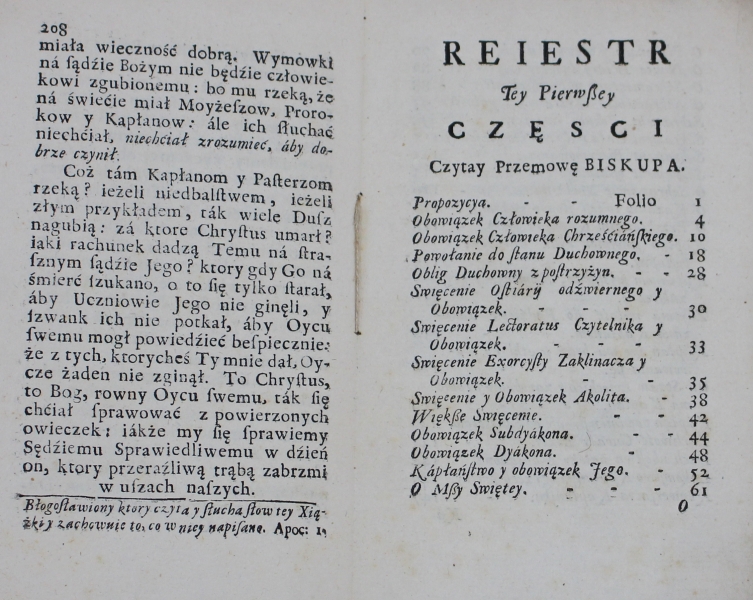 208
miała wieczność dobrą. Wymowki
ná ſądźie Bożym nie będźie człowie-
kowi zgubionemu: bo mu rzeką, że
ná świećie miał Moyżeſzow, Proro-
kow y Kapłanow: ále ich ſłuchać
niechćiał, niechćiał zrozumieć, áby do-
brze czynił.
Coż tám Kapłanom y Paſterzom
rzeką? ieżeli niedbalſtwem, ieżeli
złym przykładem, ták wiele Duſz
nagubią: zá ktore Chryſtus umarł?
iaki rachunek dadzą Temu ná ſtra-
ſznym ſądźie Jego? ktory gdy Go ná
śmierć ſzukano, o to ſię tylko ſtarał,
áby Uczniowie Jego nie ginęli, y
ſzwank ich nie potkał, áby Oycu
ſwemu mogł powiedźieć beſpiecznie:
że z tych, ktorycheś Ty mnie dał, Oy-
cze żaden nie zginął. To Chryſtus,
to Bog, rowny Oycu ſwemu, ták ſię
chćiał ſprawować z powierzonych
owieczek: iákże my ſię ſprawiemy
Sędźiemu Sprawiedliwemu w dźień
on, ktory przeraźliwą trąbą zabrzmi
w uſzach naſzych.
Błogoſławiony ktory czyta y ſłucha ſłow tey Xią-
żki y zachownie to, co w niey napiſano. Apoc: 1.
REIESTR
Tey Pierwßey
CZĘSCI
Czytay Przemowę BISKUPA.
Propozycya. - - Folio 1
Obowiązek Człowieka rozumnego. 4
Obowiązek Człowieka Chrześćiáńſkiego. 10
Powołanie do ſtanu Duchownego. - 18
Oblig Duchowny z poſtrzyżyn. - - 28
Swięcenie Oſtiárij odźwiernego y
Obowiązek. - - - 30
Swięcenie Lectoratus Czytelnika y
Obowiązek. - - - 33
Swięcenie Exorcyſty Zaklinacza y
Obowiązek. - - - 35
Swięcenie y Obowiązek Akolita. - 38
Więkße Swięcenie. - - 42
Obowiązek Subdyákona. - - 44
Obowiązek Dyákona. - 48
Kápłáńſtwo y obowiązek Jego. - 52
O Mßy Swiętey. - - - 61
O